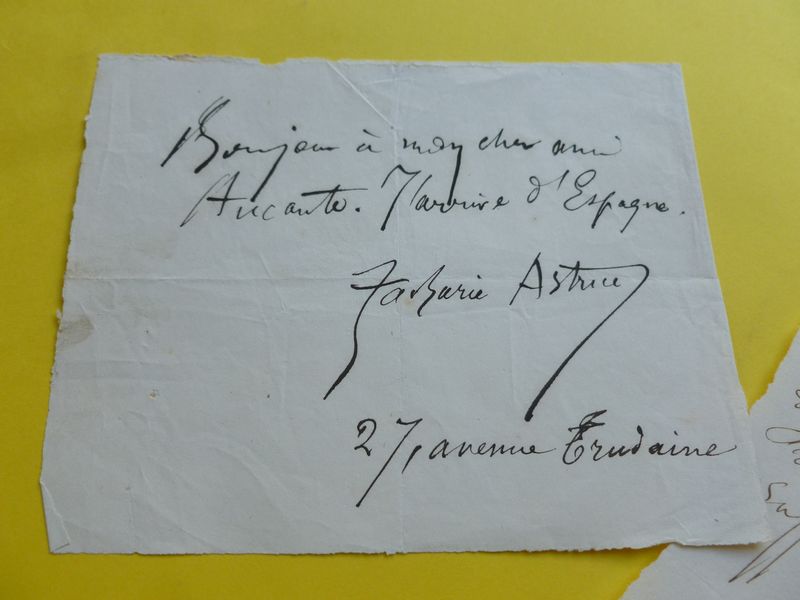 Bonjour à mon cher ami
Alicante. J'arrive d'Espagne.
Zacharie Astruc
27, avenue Trudaine